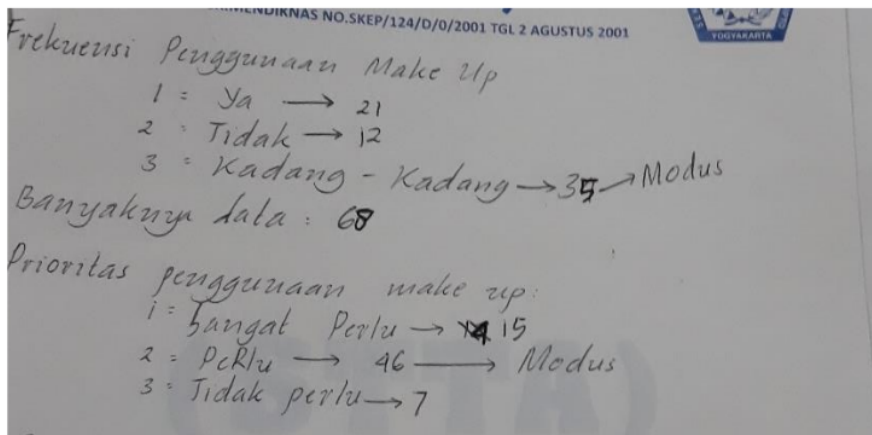 NDIKNAS NO.SKEP/124/D/0/2001 TGL 2 AGUSTUS 2001
YOGYAKARTA
Frekuensi Penggunaan Make Up
1 = Ya → 21
2 = Tidak → 12
3 = Kadang - Kadang → 35 → Modus
Banyaknya data : 68
Prioritas penggunaan make up:
1 = Sangat Perlu → 15
2 = PeRlu → 46 → Modus
3 = Tidak perlu → 7
(STTA)